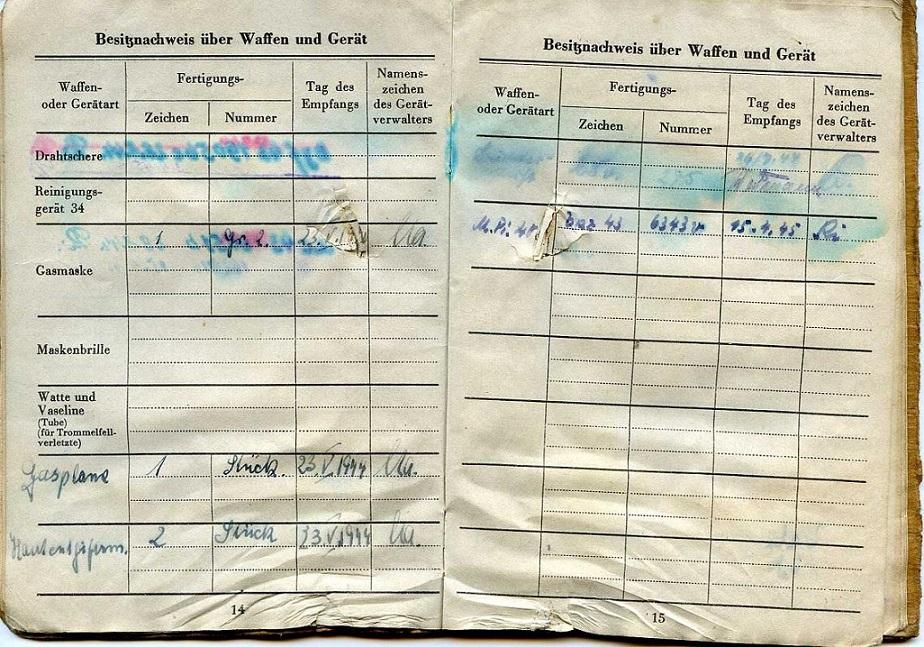 Besitznachweis über Waffen und Gerät
Waffen-
oder Gerätart
Fertigungs-
Zeichen
Nummer
Tag des
Empfangs
Namens-
zeichen
des Gerät-
verwalters
Drahtschere
Reinigungs-
gerät 34
Gasmaske 1 Gr. 2.
Maskenbrille
Watte und
Vaseline
(Tube)
(für Trommelfell-
verletzte)
Gasplane 1 Stück. 23.V.1944
2 Stück 23.V.1944
14
Besitznachweis über Waffen und Gerät
Waffen-
oder Gerätart
Fertigungs-
Zeichen
Nummer
Tag des
Empfangs
Namens-
zeichen
des Gerät-
verwalters
M.Pi. 43 15.4.45
15